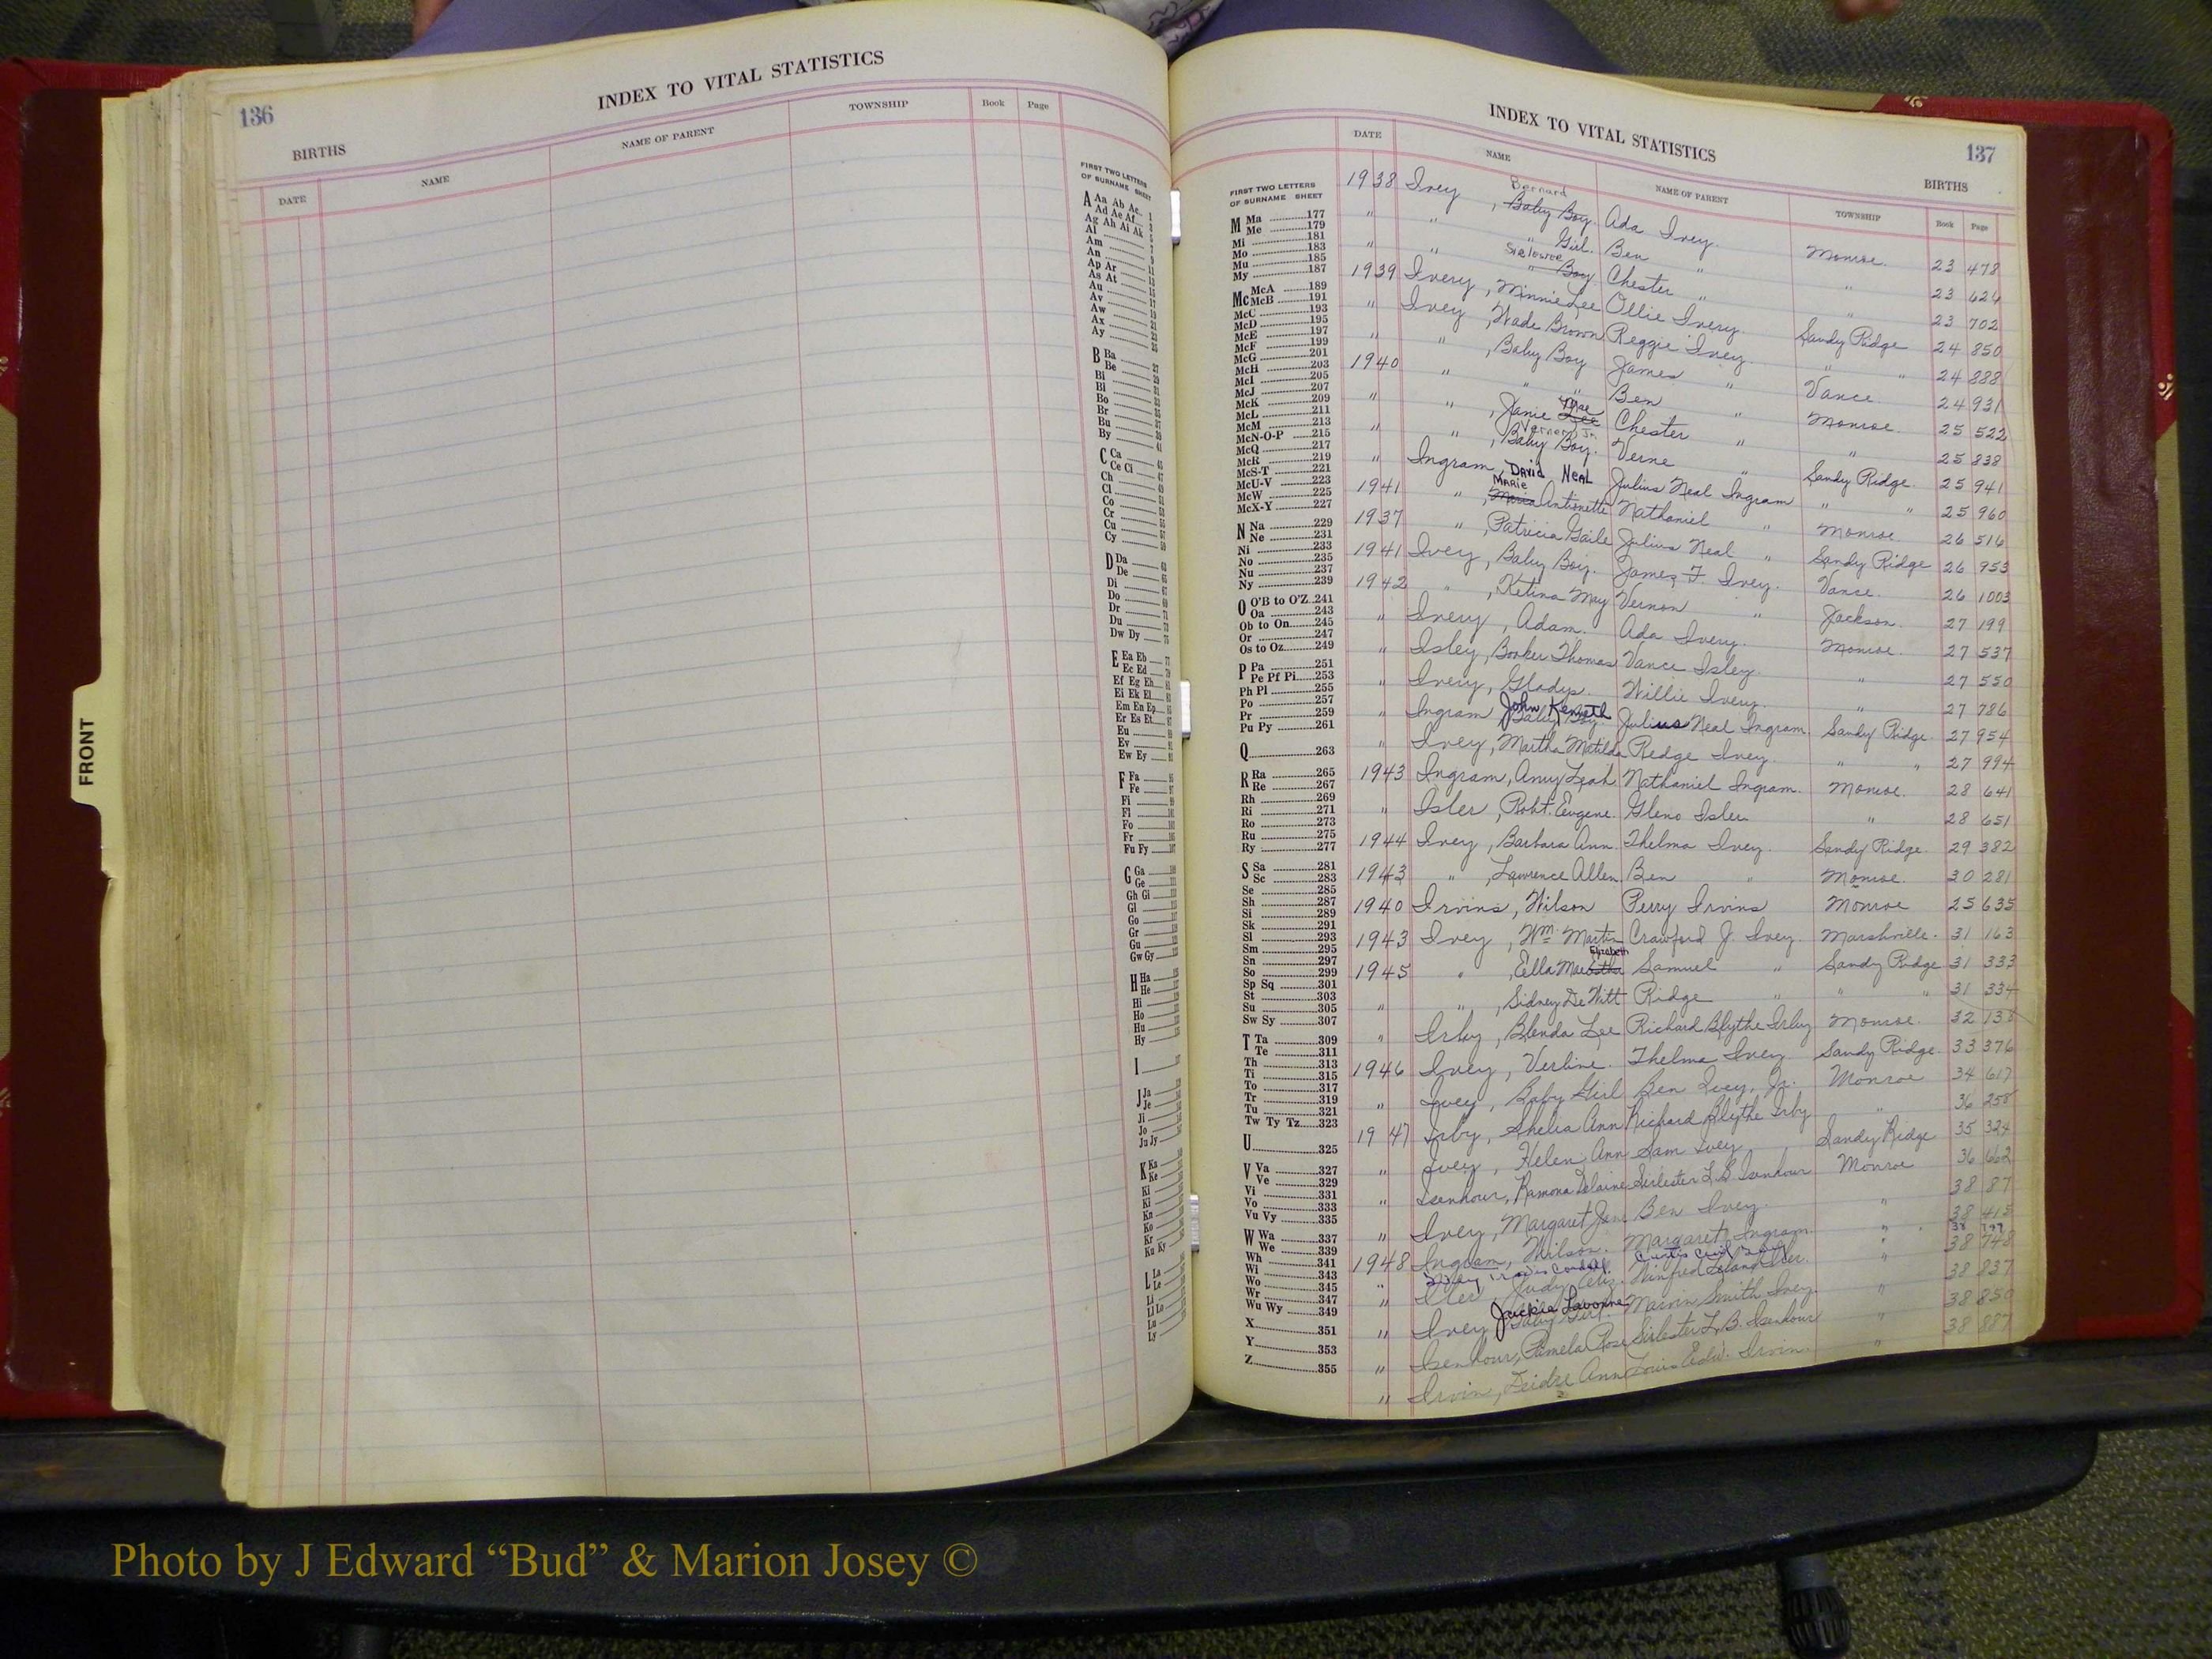 136
INDEX TO VITAL STATISTICS
BIRTHS
DATE NAME NAME OF PARENT TOWNSHIP Book Page
FIRST TWO LETTERS
OF SURNAME SHEET
A Aa Ab Ac
Ad Ae Af
Ag Ah Ai Ak
Al
Am
An
Ap Ar
As At
Au
Av
Aw
Ax
Ay
B Ba
Be
Bi
Bl
Bo
Br
Bu
By
C Ca
Ce Ci
Ch
Cl
Co
Cr
Cu
Cy
D Da
De
Di
Do
Dr
Du
Dw Dy
E Ea Eb
Ec Ed
Ef Eg Eh
Ei Ek El
Em En Ep
Er Es Et
Eu
Ev
Ew Ey
F Fa
Fe
Fi
Fl
Fo
Fr
Fu Fy
G Ga
Ge
Gh Gi
Gl
Go
Gr
Gu
Gw Gy
H Ha
He
Hi
Ho
Hu
Hy
I
J Ja
Je
Ji
Jo
Ju Jy
K Ka
Ke
Ki
Kn
Ko
Kr
Ku Ky
L La
Le
Li
Ll Lo
Lu
Ly
FRONT
INDEX TO VITAL STATISTICS
137
BIRTHS
DATE NAME NAME OF PARENT TOWNSHIP Book Page
FIRST TWO LETTERS
OF SURNAME SHEET
M Ma 177
Me 179
Mi 181
Mo 183
Mu 185
My 187
Mc McA 189
McB 191
McC 193
McD 195
McE 197
McF 199
McG 201
McH 203
McI 205
McJ 207
McK 209
McL 211
McM 213
McN-O-P 215
McQ 217
McR 219
McS-T 221
McU-V 223
McW 225
McX-Y 227
N Na 229
Ne 231
Ni 233
No 235
Nu 237
Ny 239
O O'B to O'Z 241
Oa 243
Ob to On 245
Or 247
Os to Oz 249
P Pa 251
Pe Pf Pi 253
Ph Pl 255
Po 257
Pr 259
Pu Py 261
Q 263
R Ra 265
Re 267
Rh 269
Ri 271
Ro 273
Ru 275
Ry 277
S Sa 281
Sc 283
Se 285
Sh 287
Si 289
Sk 291
Sl 293
Sm 295
Sn 297
So 299
Sp Sq 301
St 303
Su 305
Sw Sy 307
T Ta 309
Te 311
Th 313
Ti 315
To 317
Tr 319
Tu 321
Tw Ty Tz 323
U 325
V Va 327
Ve 329
Vi 331
Vo 333
Vu Vy 335
W Wa 337
We 339
Wh 341
Wi 343
Wo 345
Wr 347
Wu Wy 349
X 351
Y 353
Z 355
Bernard
1938 Ivey, Baby Boy. Ada Ivey. Monroe. 23 478
" " " Girl. Ben " " 23 624
" " " Boy Chester " " 23 702
1939 Ivery, Minnie Lee Ollie Ivery. Sandy Ridge 24 850
" Ivey, Wade Brown Reggie Ivey. " " 24 888
" " , Baby Boy James " Vance. 24 931
1940 " " " Ben " Monroe. 25 522
Mae
" " , Janie Lee Chester " " 25 838
Vernon Jr.
" " , Baby Boy. Verne " Sandy Ridge. 25 941
" Ingram, David Neal Julius Neal Ingram " " 25 960
Marie
1941 " , Antionette Nathaniel " Monroe 26 516
1937 " , Patricia Gaile Julius Neal " Sandy Ridge 26 953
1941 Ivey, Baby Boy. James F. Ivey. Vance. 26 1003
1942 " , Ketina May Vernon " Jackson. 27 199
" Ivery, Adam. Ada Ivery. Monroe. 27 537
" Isley, Booker Thomas Vance Isley. " 27 550
" Ivery, Gladys. Willie Ivery. " 27 786
John Kenneth
" Ingram Baby Boy. Julius Neal Ingram. Sandy Ridge. 27 954
" Ivey, Martha Matilda Redge Ivey. " " 27 994
1943 Ingram, Amy Leah. Nathaniel Ingram. Monroe. 28 641
" Isler, Robt. Eugene. Gleno Isler " 28 651
1944 Ivey, Barbara Ann. Thelma Ivey. Sandy Ridge. 29 382
1943 " , Lawrence Allen. Ben " Monroe. 30 281
1940 Irvins, Wilson Perry Irvins Monroe 25 635
1943 Ivey, Wm. Martin Crawford J. Ivey. Marshville. 31 163
Elizabeth
1945 " , Ella Mae Samuel " Sandy Ridge 31 333
" " , Sidney De Witt Ridge " " " 31 334
" Irby, Blenda Lee Richard Blythe Irby Monroe. 32
1946 Ivey, Verline. Thelma Ivey. Sandy Ridge. 33 376
" Ivey, Baby Girl Ben Ivey, Jr. Monroe 34 617
1947 Irby, Shelia Ann Richard Blythe Irby " 36 258
" Ivey, Helen Ann Sam Ivey Sandy Ridge 35 324
" Isenhour, Ramona Delaine Sirlester L. B. Isenhour Monroe 36 662
" Ivey, Margaret Jane Ben Ivey. " 38 87
1948 Ingram, Wilson. Margaret Ingram. " 38 415
" Iler, Judy Eliz. Winfred Leland Iler. " 38 748
Jackie Lavonne
" Ivey Baby Girl. Marvin Smith Ivey. " 38 837
" Isenhour, Pamela Rose Sirlester L. B. Isenhour " 38 850
" Irvin, Deidre Ann Louis Edw. Irvin. " 38 887
Photo by J Edward “Bud” & Marion Josey ©